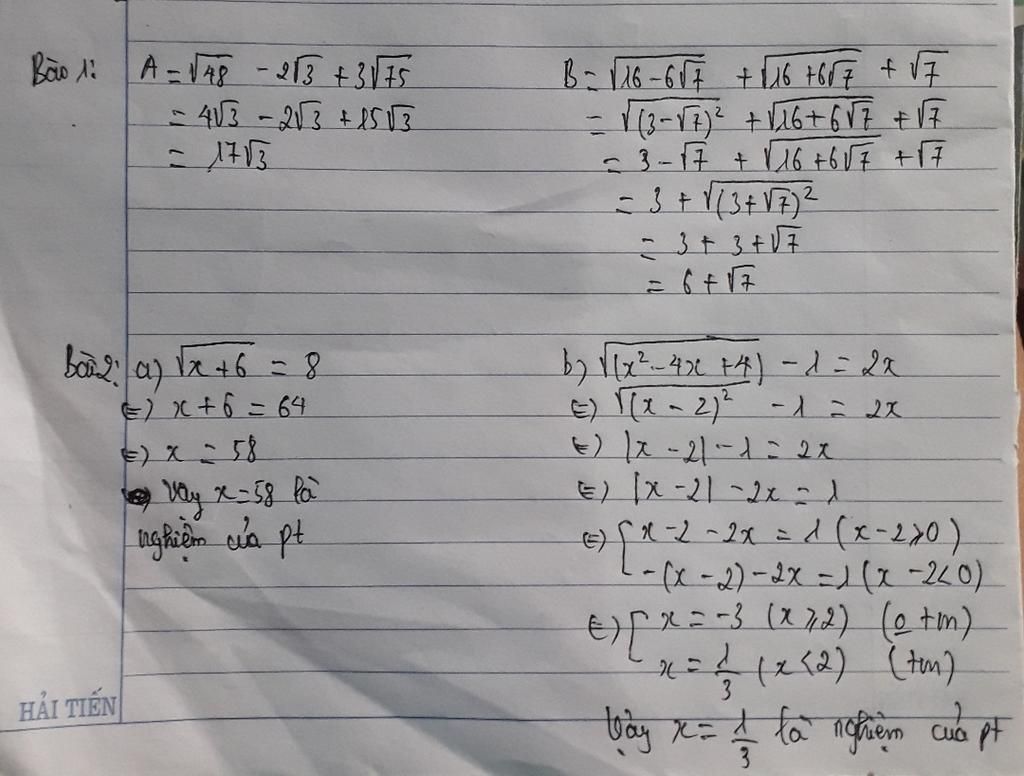 Bài 1: A = √48 - 2√3 + 3√75
= 4√3 - 2√3 + 15√3
= 17√3
B = √(16 - 6√7) + √(16 + 6√7) + √7
= √((3 - √7)²) + √(16 + 6√7) + √7
= 3 - √7 + √(16 + 6√7) + √7
= 3 + √((3 + √7)²)
= 3 + 3 + √7
= 6 + √7
Bài 2: a) √(x + 6) = 8
(=) x + 6 = 64
(=) x = 58
Vậy x = 58 là
nghiệm của pt
b) √((x² - 4x + 4)) - 1 = 2x
(=) √((x - 2)²) - 1 = 2x
(=) |x - 2| - 1 = 2x
(=) |x - 2| - 2x = 1
(=) [ x - 2 - 2x = 1 (x - 2 ≥ 0)
-(x - 2) - 2x = 1 (x - 2 < 0)
(=) [ x = -3 (x ≥ 2) (o tm)
x = 1/3 (x < 2) (tm)
Vậy x = 1/3 là nghiệm của pt
HẢI TIẾN